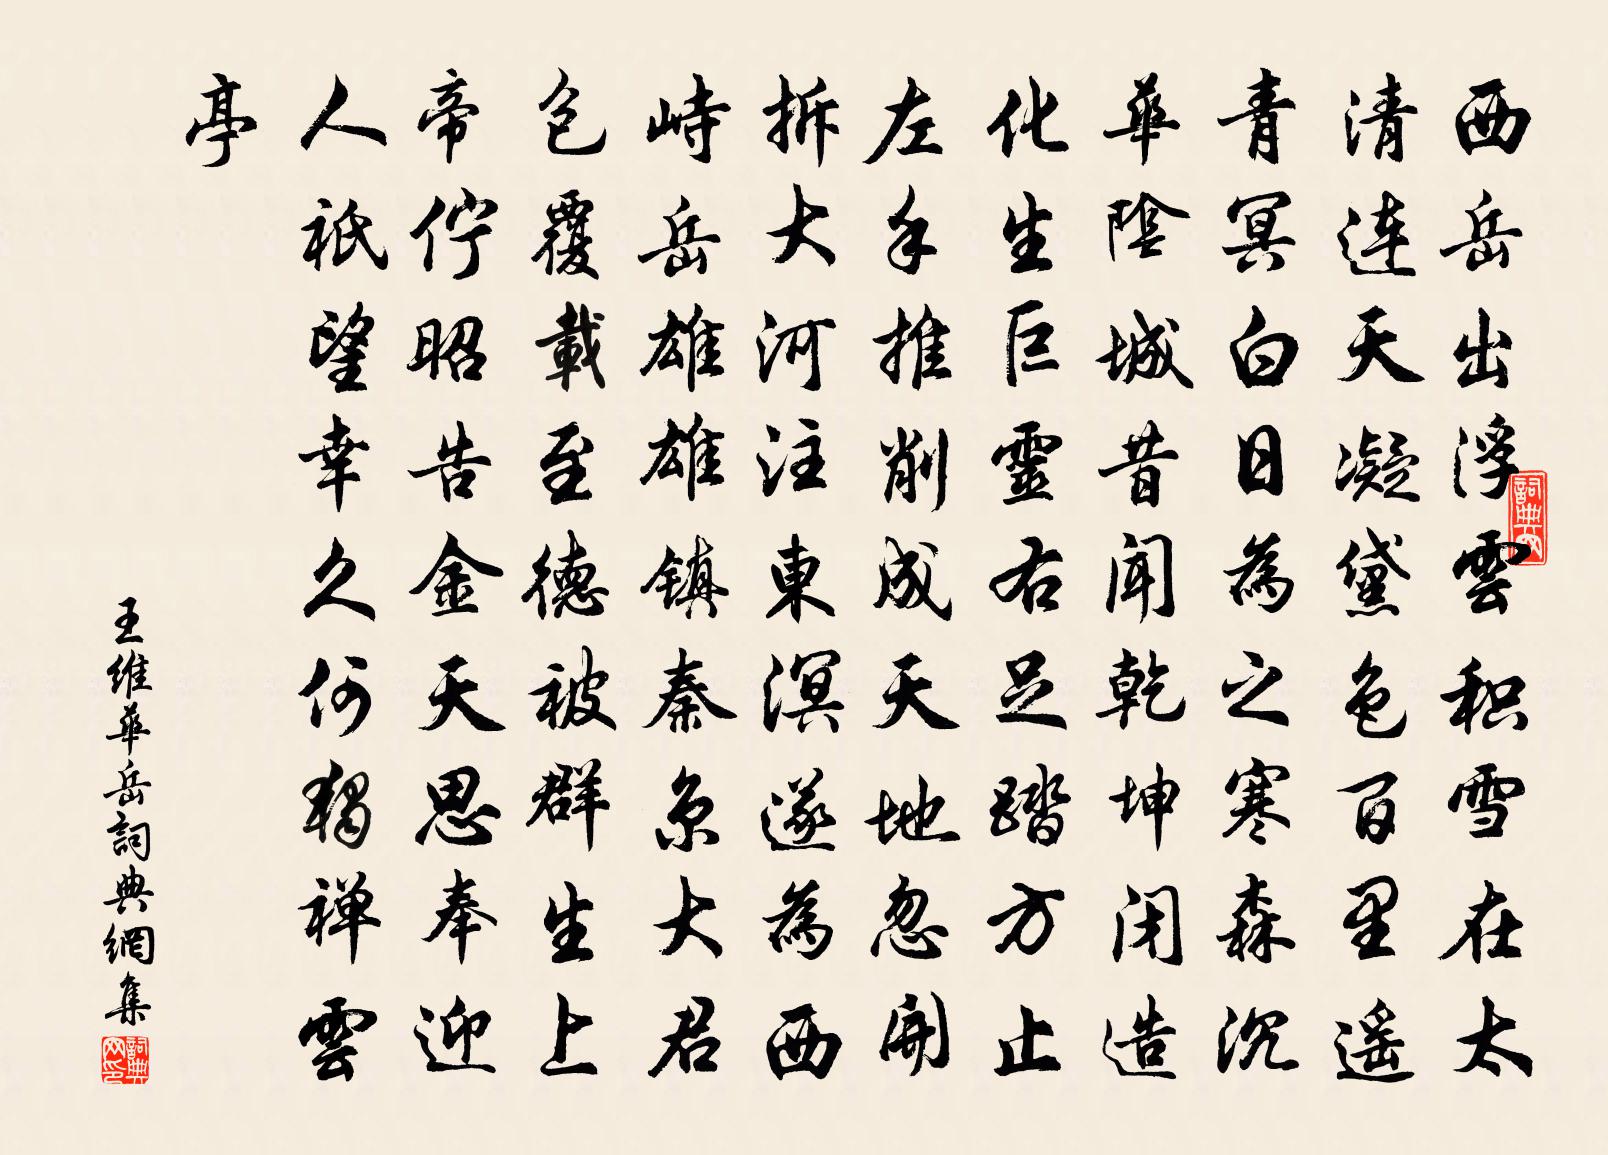 西岳出浮雲积雪在太
清連天凝黛色百里遥
青冥白日為之寒森沉
華陰城昔聞乾坤闭造
化生巨靈右足踏方止
左手推削成天地忽開
拆大河注東溟遂為西
峙岳雄雄镇秦京大君
包覆載至德被群生上
帝佇昭告金天思奉迎
人祇望幸久何獨禅雲
亭
王維華岳詞典網集
詞典网
詞典网印